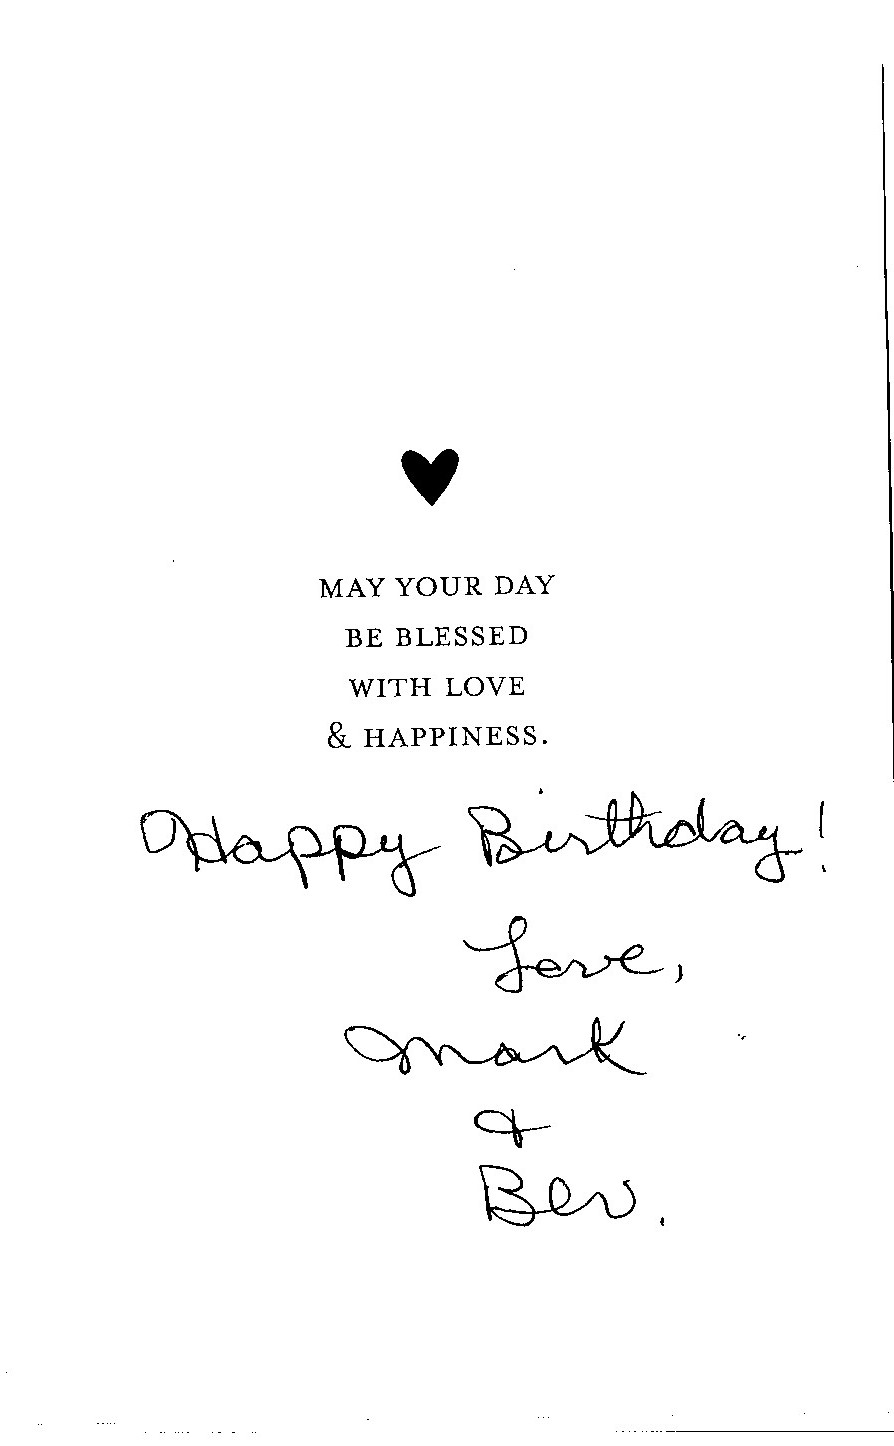 MAY YOUR DAY
BE BLESSED
WITH LOVE
& HAPPINESS.
Happy Birthday!
Love,
Mark
&
Bev.